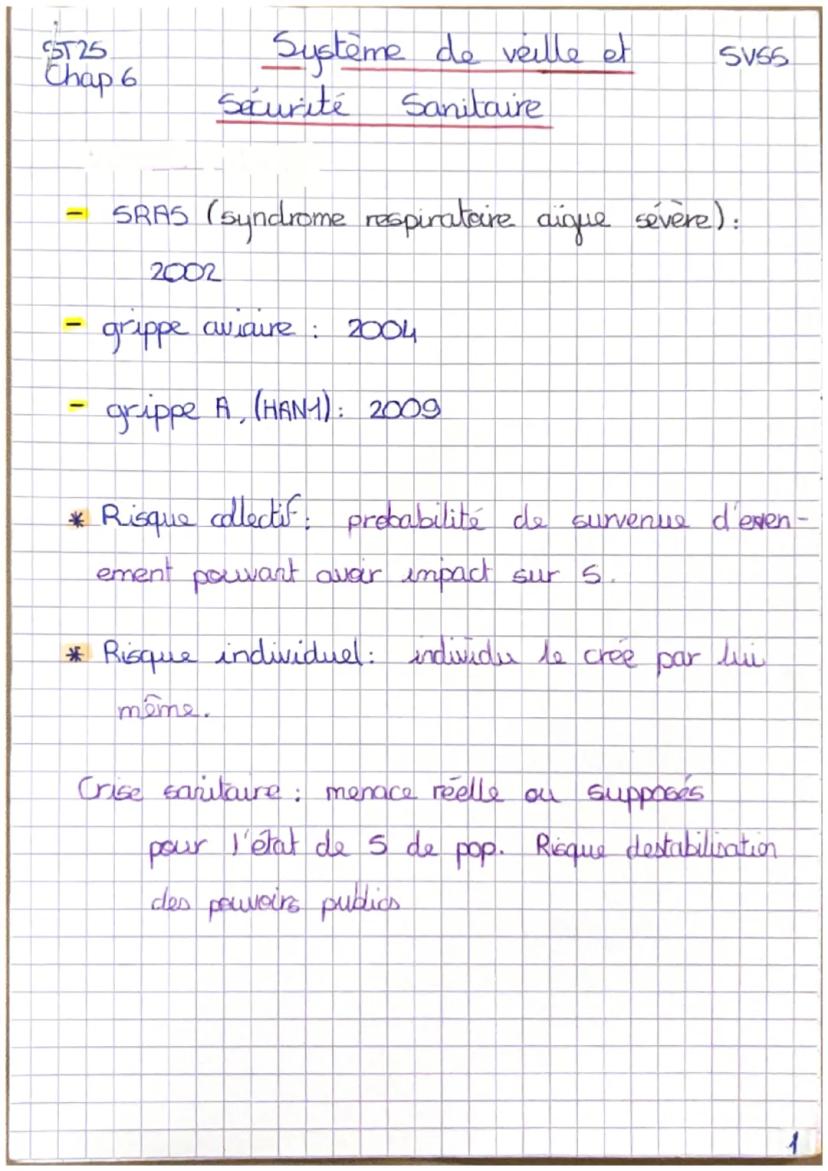 ST2S
Chap 6
Système de veille et
SVSS
Sécurité Sanitaire
- SRAS (syndrome respiratoire aigue sévère):
2002
- grippe aviaire : 2004
- grippe A, (HAN1): 2009
* Risque collectif : probabilité de survenue d'even-
ement pouvant avoir impact sur S.
* Risque individuel: individu le crée par lui
même.
Crise sanitaire : menace réelle ou supposés
pour l'état de S de pop. Risque destabilisation
des pouvoirs publics
1